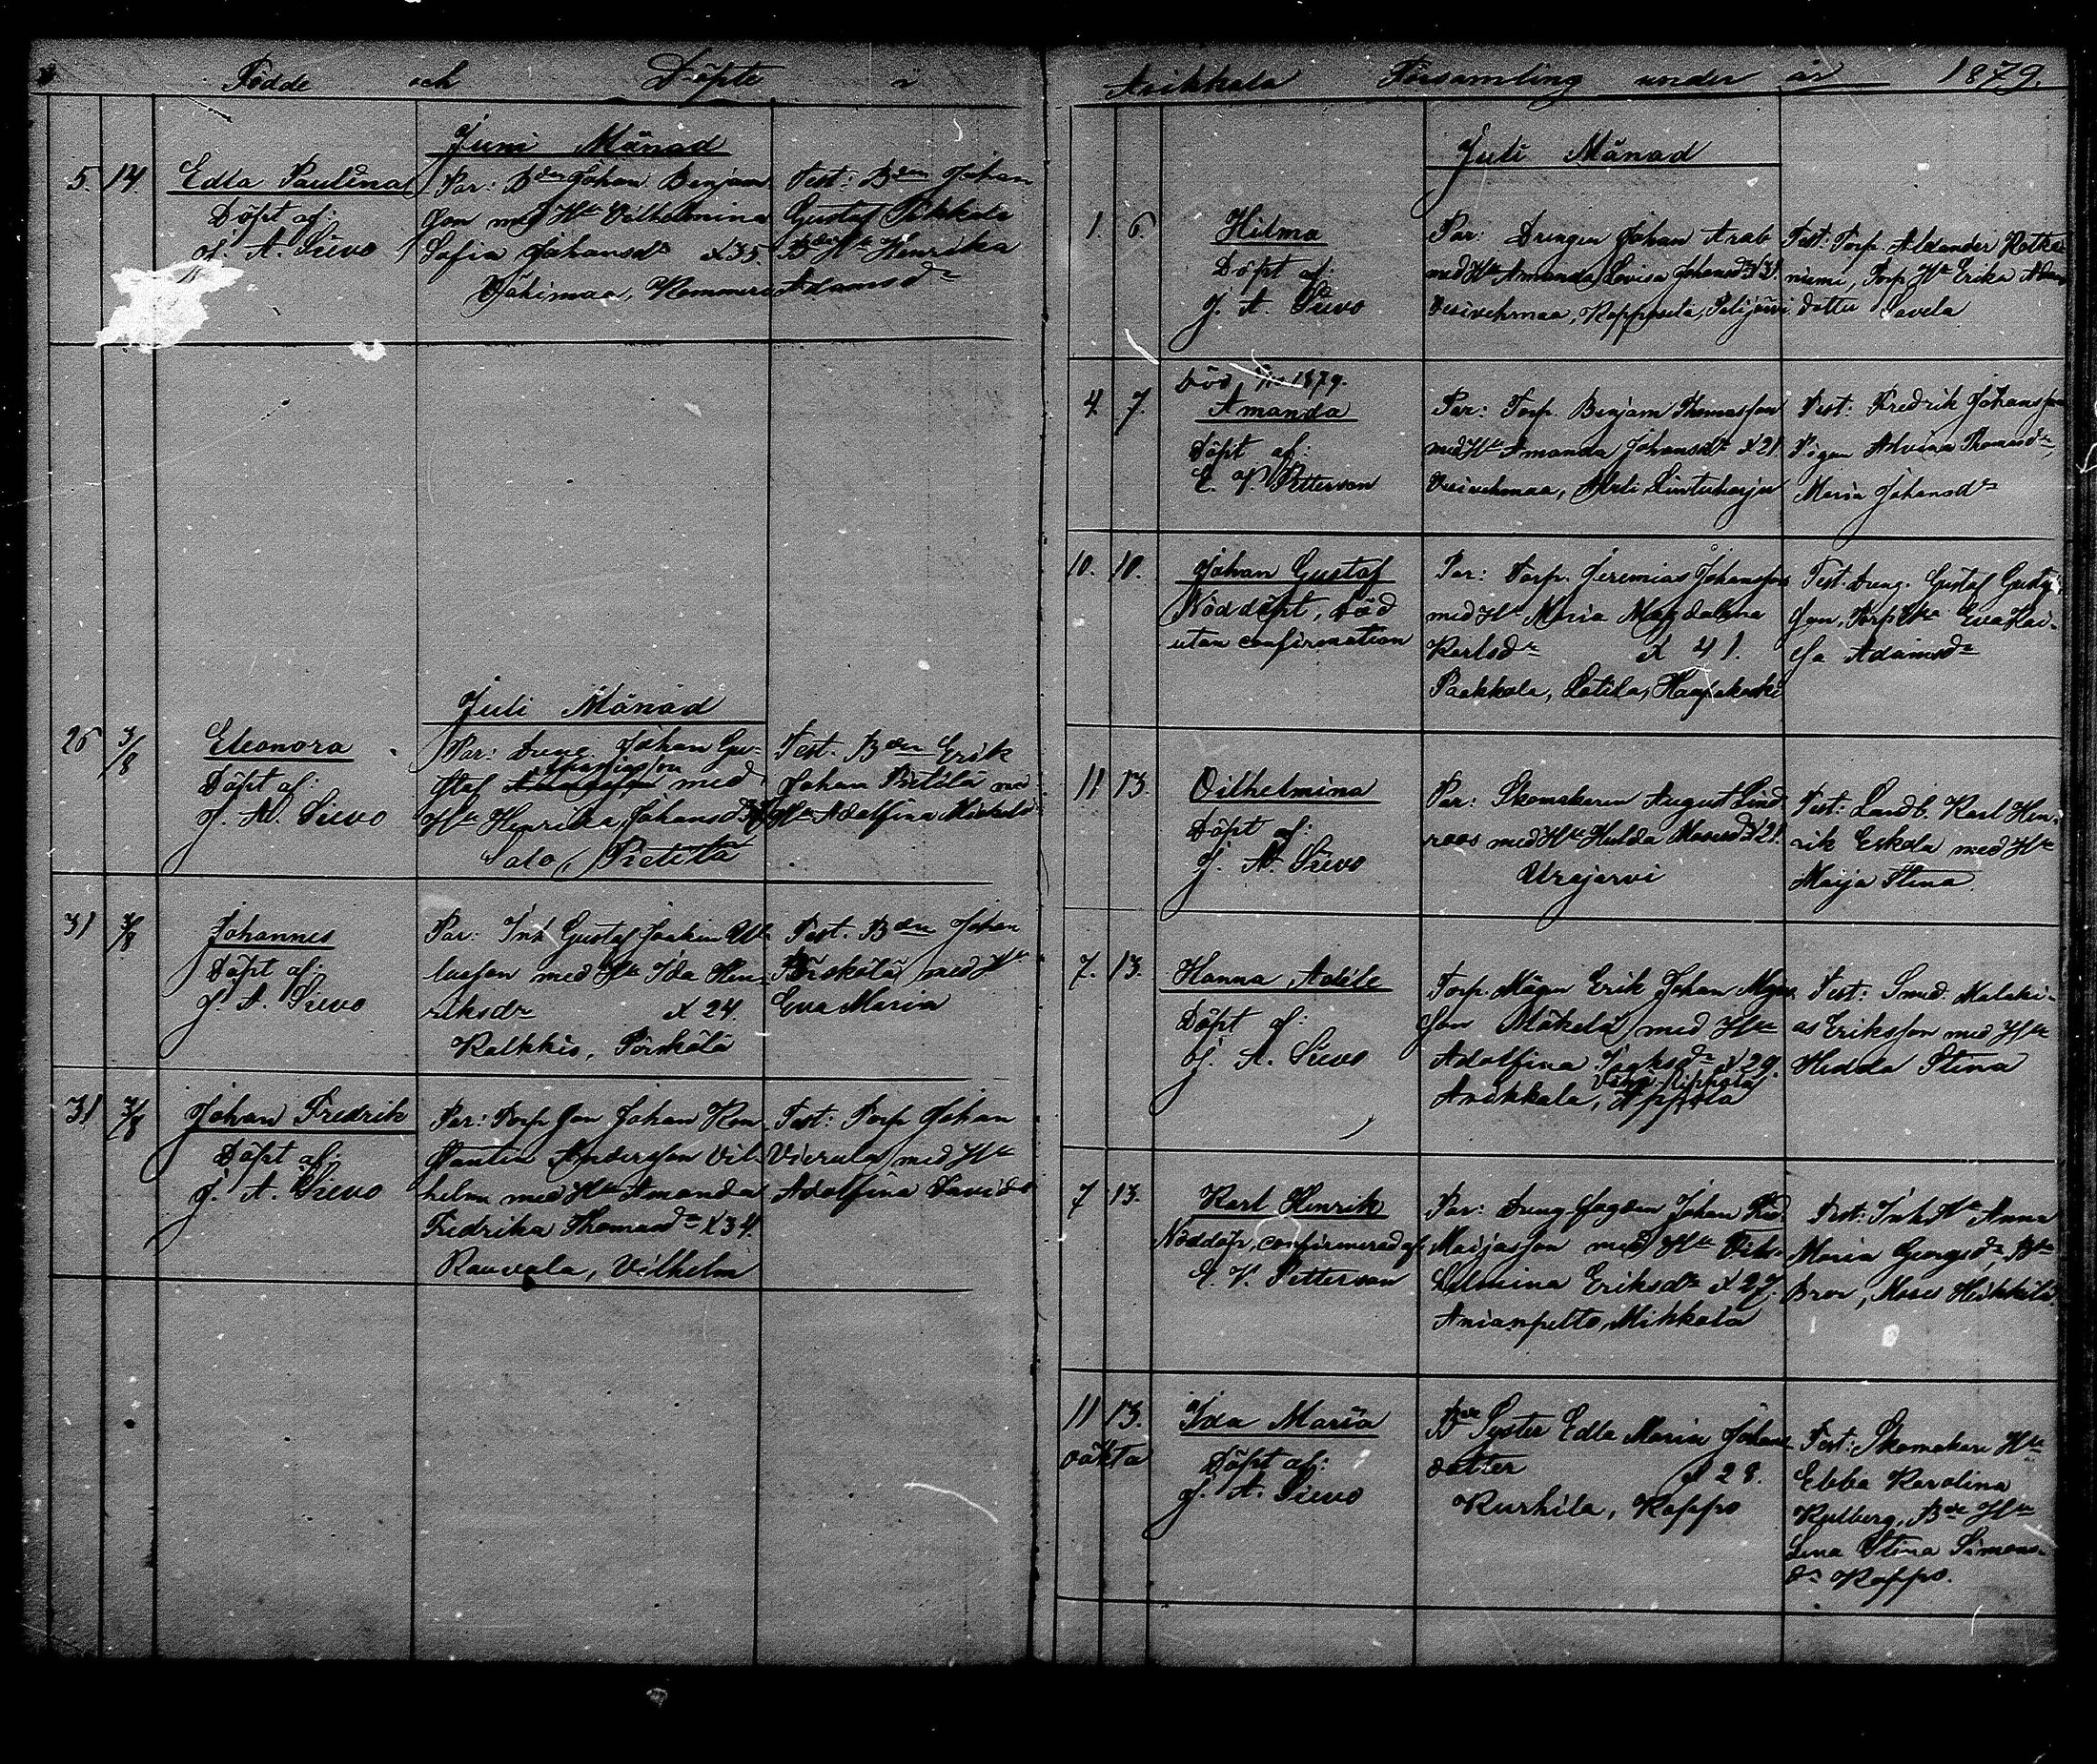 Födde och Döpte i
Juni Månad
5. 14 Edla Paulina
Döpt af:
J. A. Sievo
Par: Bden Johan Benjam
son med Hu Vilhelmina
Sofia Johansdr x 35.
Vähimaa, Kommers
Test: Bden Johan
Gustaf Pikkala
Bde Hu Henrika
Adamsdr
Juli Månad
26 3/8 Eleonora
Döpt af:
J. A. Sievo
Par: Dreng. Johan Gu-
staf med
Hu Henrika Johansd
Salo, Pietilä
Test. Bden Erik
Johan Pietilä med
Hu Adolfina Mickelsd
31 3/8 Johannes
Döpt af:
J. A. Sievo
Par: Inh Gustaf Joakim
med Hu Ida Hen-
riksdr x 24.
Kalkkis, Pörskölä
Test. Bden Johan
Pörskölä med Hu
Eva Maria
31 3/8 Johan Fredrik
Döpt af:
J. A. Sievo
Par: Torp son Johan Kon
stantin Andersson Vil-
helm med Hu Amanda
Fredrika Thomasdr x 34.
Rauvala, Vilhelm
Test: Torp Johan
Vierula med Hu
Adolfina Davidsd
Asikkala Församling under år 1879.
Juli Månad
1. 6. Hilma
Döpt af:
J. A. Sievo
Par: Drengen Johan Arab
med Hu Amanda Lovisa Johansdr x 31.
Vesivehmaa, Kappaeta, Pilijärvi
Test: Torp. Alexander Kotka
niemi, Torp Hu Erika Adams
dotter Savela
4. 7. Död 1879.
Amanda
Döpt af:
E. V. Petterson
Par: Torp. Benjam Thomasson
med Hu Amanda Johansdr x 21
Vesivehmaa, Lintuharju
Test: Fredrik Johansson
Pigan Alvina Thomasdr,
Maria Johansdr
10. 10. Johan Gustaf
Nöddöpt, död
utan confirmation
Par: Torp. Jeremias Johansson
med Hu Maria Magdalena
Karlsdr x 41.
Paakkola, Latila, Haapakoski
Test: Dreng. Gustaf Gustaf
son, Torp Hu Eva Kai-
sa Adamsdr
11 13. Vilhelmina
Döpt af:
J. A. Sievo
Par: Skomakaren August Lind
roos med Hu Hulda Mosesd x 21.
Urajärvi
Test: Landb. Karl Hen-
rik Eskola med Hu
Maija Stina.
7. 13. Hanna Adéle
Döpt af:
J. A. Sievo
Torp Mågen Erik Johan
son Mäkelä med Hu
Adolfina Isaksdr x 29.
Asikkala,
Test: Smed. Malaki-
as Eriksson med Hu
Hedda Stina
7 13. Karl Henrik
Nöddöp, confirmerad af
E. V. Petterson
Par: Johan Fred.
Maijasson med Hu Vil-
helmina Eriksdr x 27.
Anianpelto, Mikkola
Test: Inh Hu Anna
Maria Georgsdr,
Bror, Moses Heikkilä
11 13. Ida Maria
oäkta
Döpt af:
J. A. Sievo
Bde Syster Edla Maria Johans
dotter x 28.
Kurhila, Kappo
Test: Skomakare Hu
Ebba Karolina
Kulberg, Bde Hu
Lena Stina Simons-
dr Kappo.